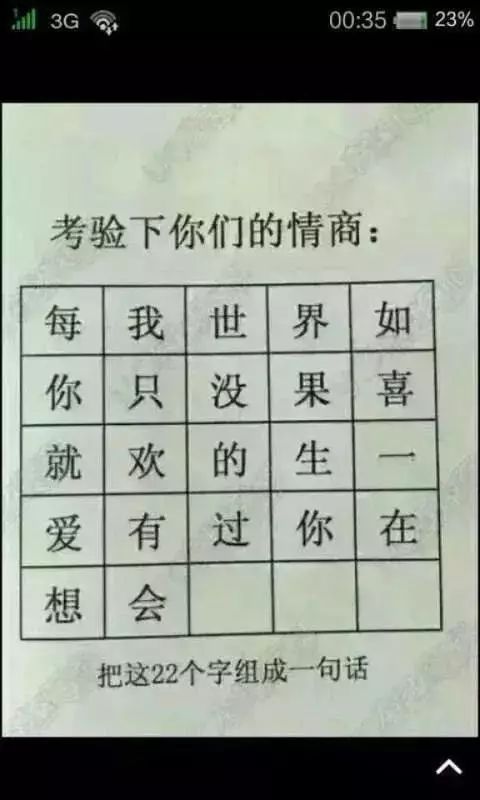 3G 00:35 23%
考验下你们的情商:
每 我 世 界 如
你 只 没 果 喜
就 欢 的 生 一
爱 有 过 你 在
想 会
把这22个字组成一句话